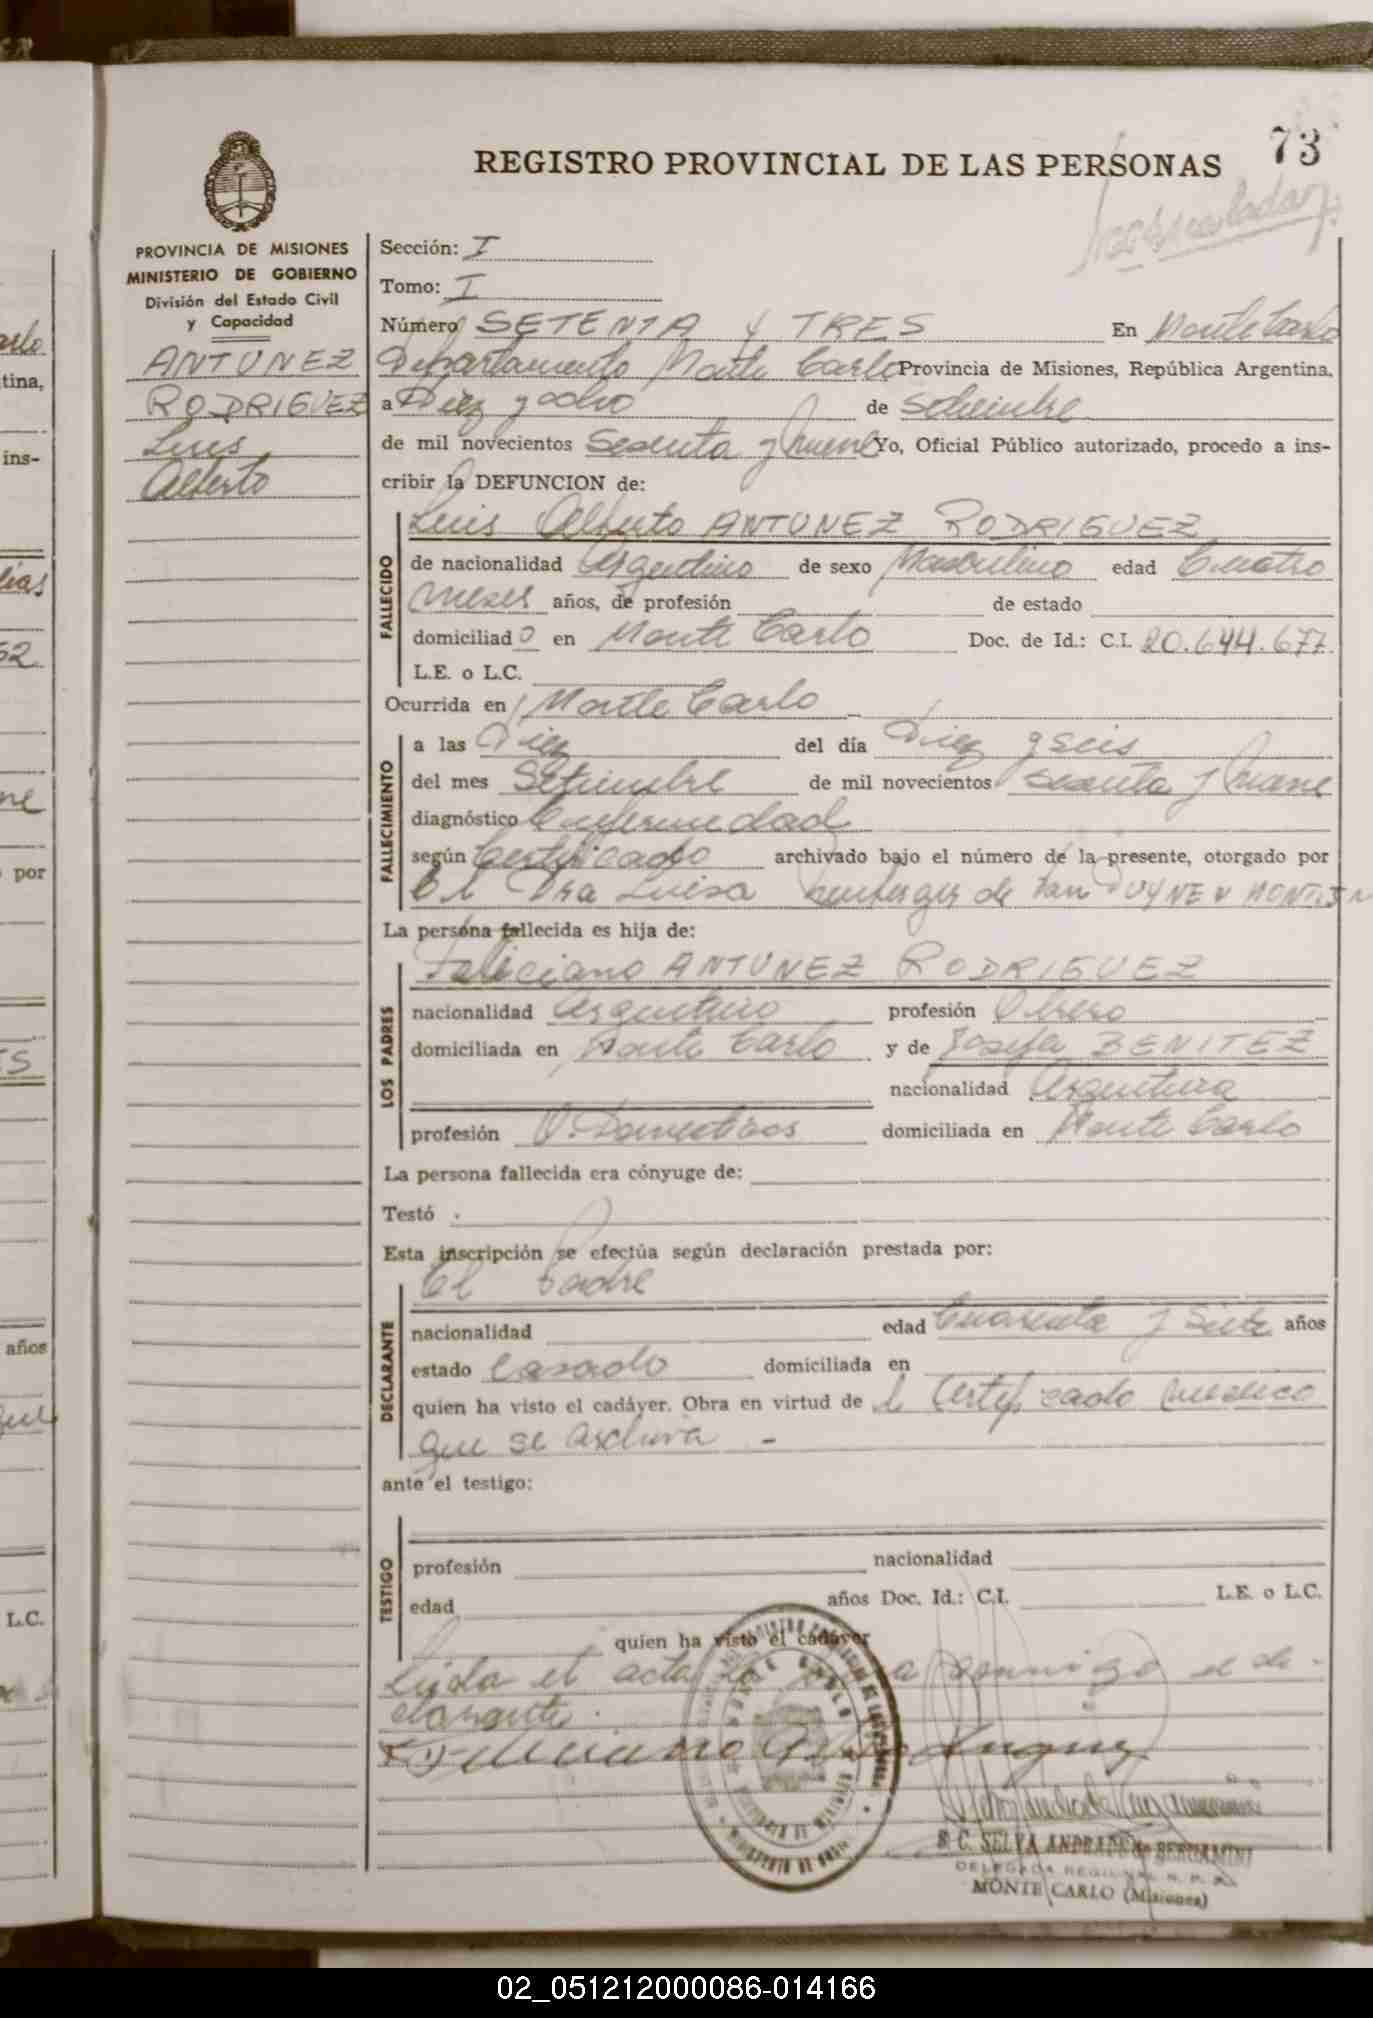 73
REGISTRO PROVINCIAL DE LAS PERSONAS
PROVINCIA DE MISIONES
MINISTERIO DE GOBIERNO
División del Estado Civil
y Capacidad
ANTUNEZ
RODRIGUEZ
Luis
Alberto
Sección: I
Tomo: I
Número SETENTA y TRES En Monte Carlo
Departamento Monte Carlo Provincia de Misiones, República Argentina,
a Diez y ocho de setiembre
de mil novecientos Sesenta y nueve Yo, Oficial Público autorizado, procedo a ins-
cribir la DEFUNCION de:
FALLECIDO
Luis Alberto ANTUNEZ RODRIGUEZ
de nacionalidad Argentino de sexo Masculino edad Cuatro
meses años, de profesión de estado
domiciliado en Monte Carlo Doc. de Id.: C.I. 20.644.677
L.E. o L.C.
Ocurrida en Monte Carlo
FALLECIMIENTO
a las Diez del día Diez y seis
del mes Setiembre de mil novecientos sesenta y nueve
diagnóstico Enfermedad
según Certificado archivado bajo el número de la presente, otorgado por
El Dra Luisa de
La persona fallecida es hija de:
LOS PADRES
Feliciano ANTUNEZ RODRIGUEZ
nacionalidad Argentino profesión Obrero
domiciliada en Monte Carlo y de Josefa BENITEZ
nacionalidad Argentina
profesión Q. Domesticos domiciliada en Monte Carlo
La persona fallecida era cónyuge de:
Testó
Esta inscripción se efectúa según declaración prestada por:
DECLARANTE
El Padre
nacionalidad edad Cuarenta y Siete años
estado Casado domiciliada en
quien ha visto el cadáver. Obra en virtud de l Certificado medico
que se archiva -
ante el testigo:
TESTIGO
profesión nacionalidad
edad años Doc. Id.: C.I. L.E. o L.C.
quien ha visto el cadáver
Leida el acta la conmigo el de-
clarante.
Feliciano
S. C. SELVA ANDRADE de BERGAMINI
DELEGADA REGIONAL
MONTE CARLO (Misiones)
arlo
tina,
ins-
lias
62
ne
por
ES
años
que
L.C.
02_051212000086-014166